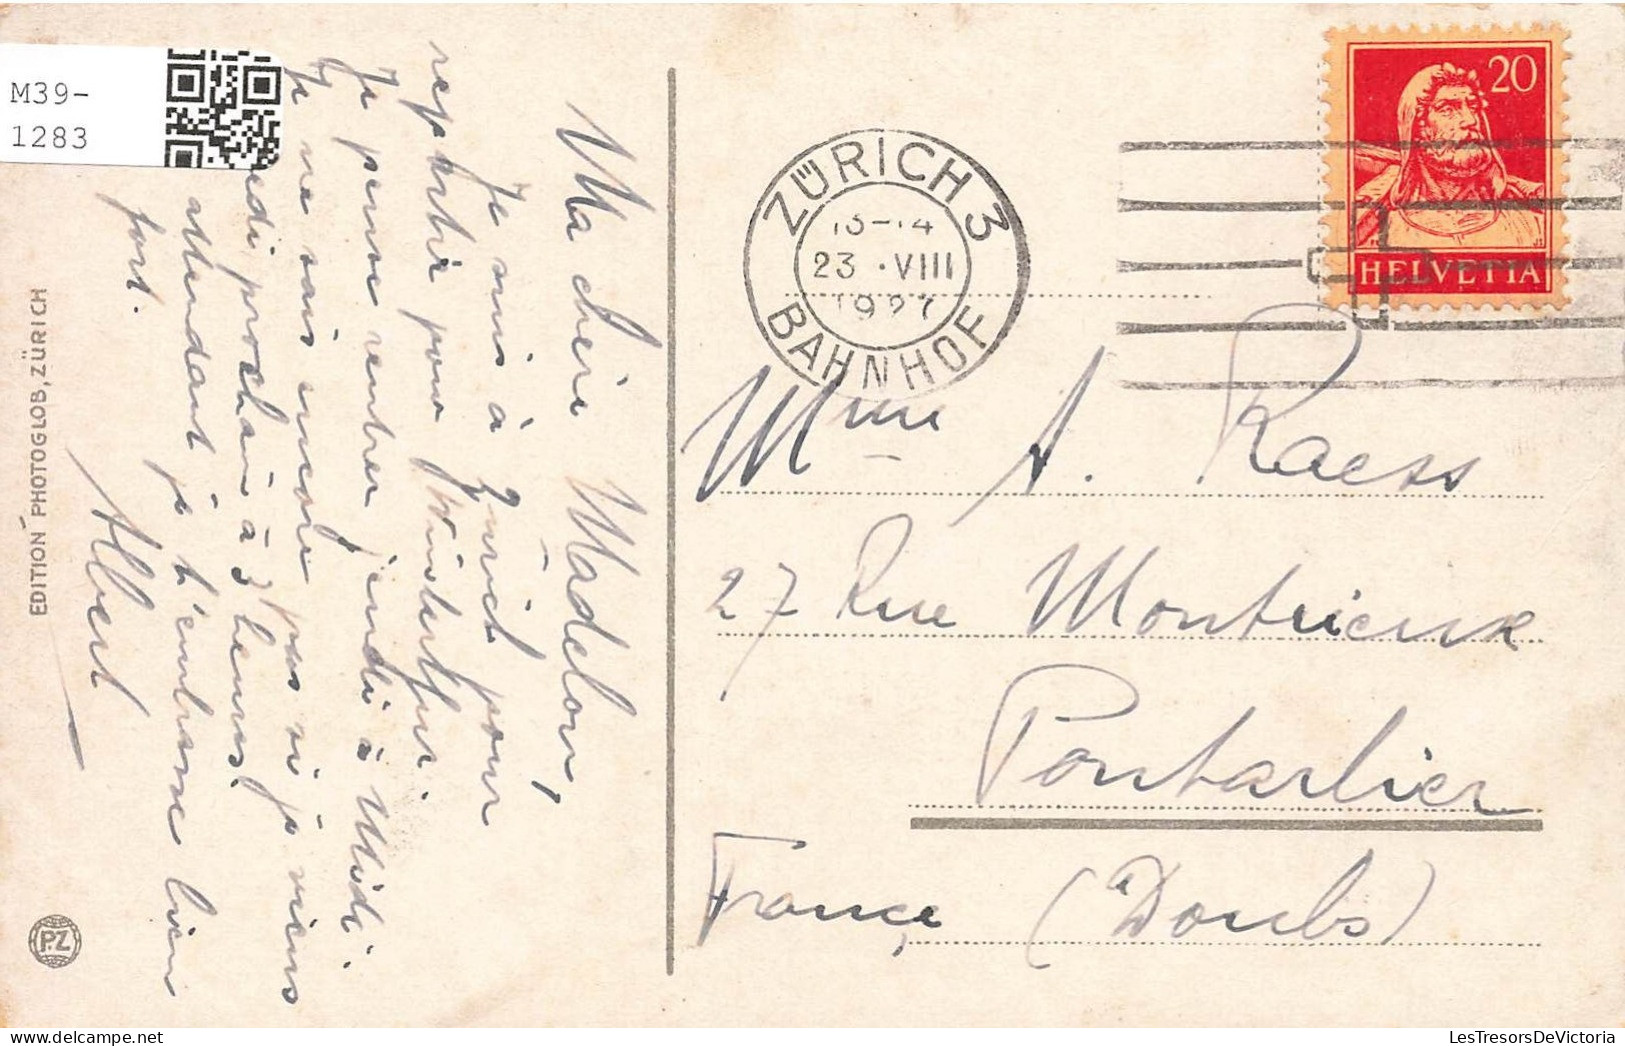 M39-
1283
Ma chère Madelon,
Je suis à Zurich pour
repartir pour Winterthur
Je pense rentrer jeudi à Midi.
Je ne sais encore pas si je viens
edi prochain à 3 heures.
attendant je t'embrasse bien
fort.
Albert
EDITION PHOTOGLOB, ZÜRICH
P.Z
ZÜRICH 3
13-14
23.VIII
1927
BAHNHOF
20
HELVETIA
Mme A. Raess
27 Rue Montrieux
Pontarlier
France, (Doubs)
LesTresorsDeVictoria